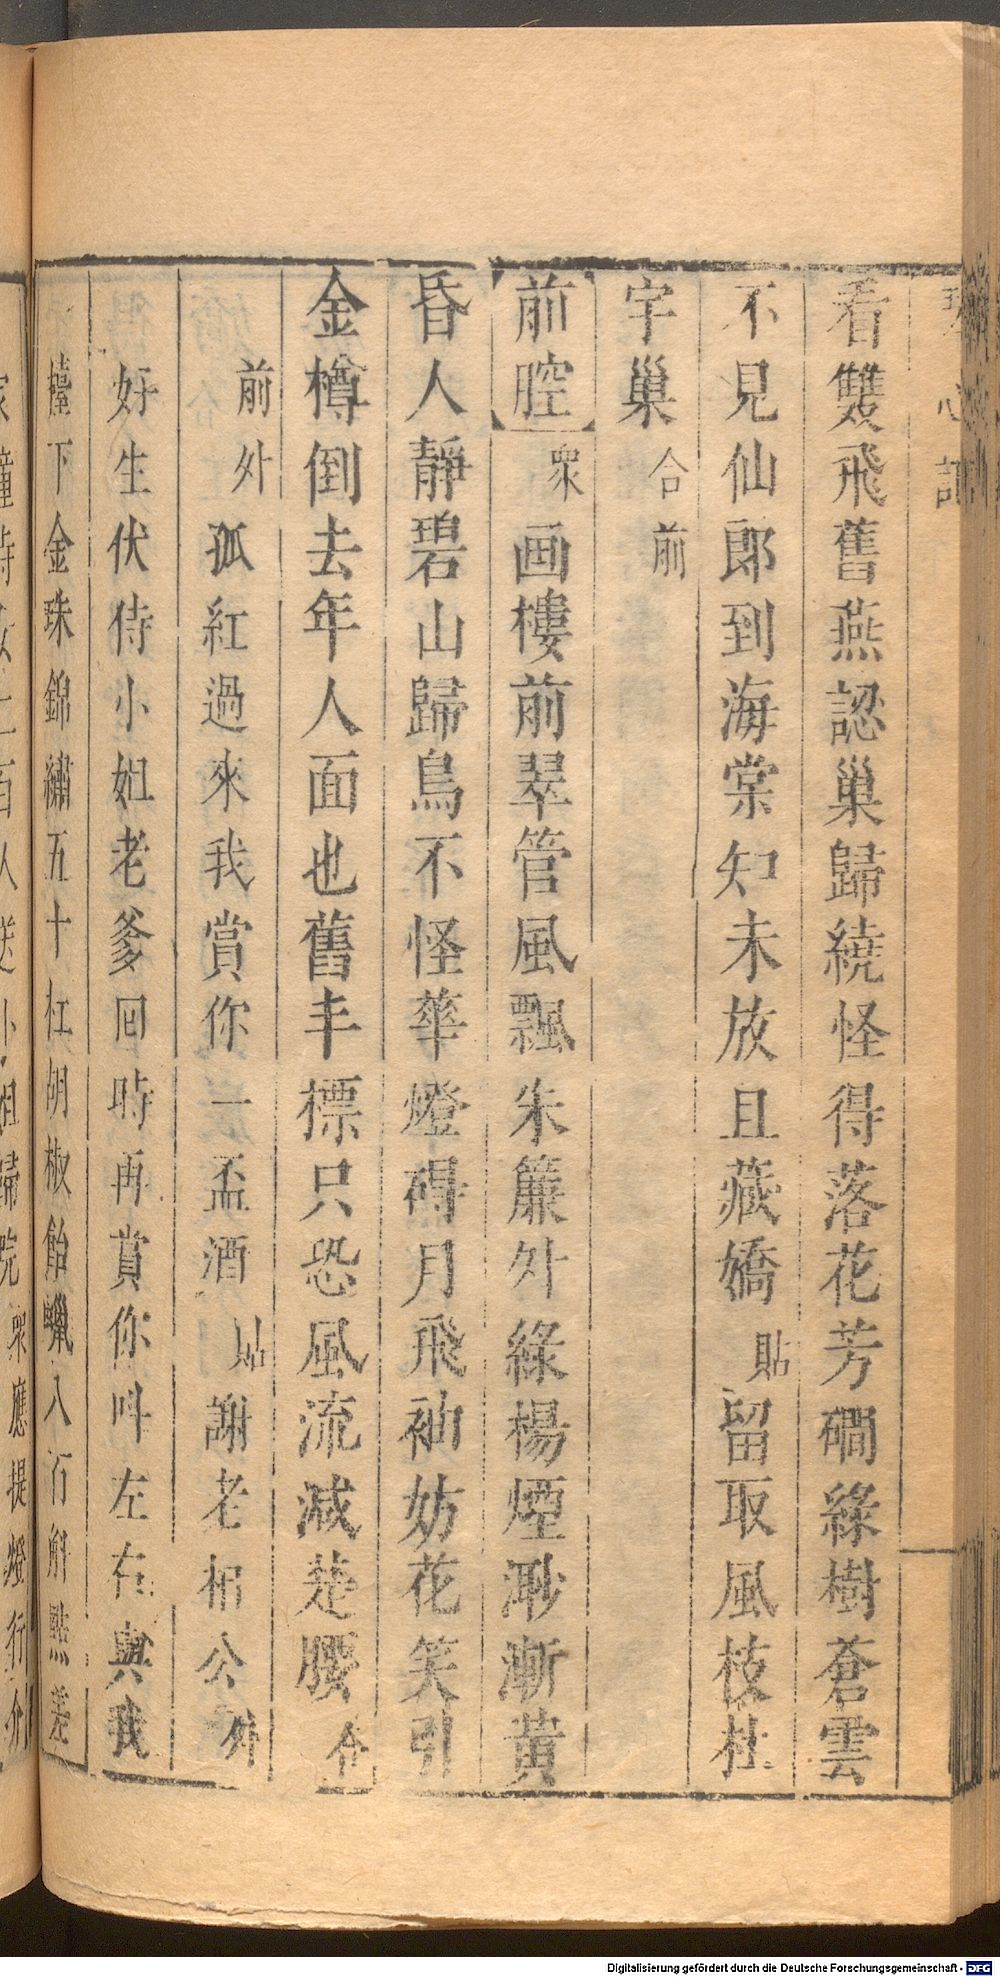 看雙飛舊燕認巢歸繞怪得落花芳磵綠樹蒼雲
不見仙郎到海棠知未放且藏嬌貼留取風枝杜
宇巢合前
【前腔】衆画樓前翠管風飄朱簾外綠楊煙渺漸黃
昏人靜碧山歸鳥不怪華燈礙月飛袖妨花笑引
金樽倒去年人面也舊丰標只恐風流減楚腰合
前外孤紅過來我賞你一盃酒貼謝老相公外
好生伏侍小姐老爹回時再賞你叫左右與我
擡下金珠錦繡五十杠胡椒飴蠟入百斛點差
人送小姐歸院衆應提燈行介
Digitalisierung gefördert durch die Deutsche Forschungsgemeinschaft - DFG